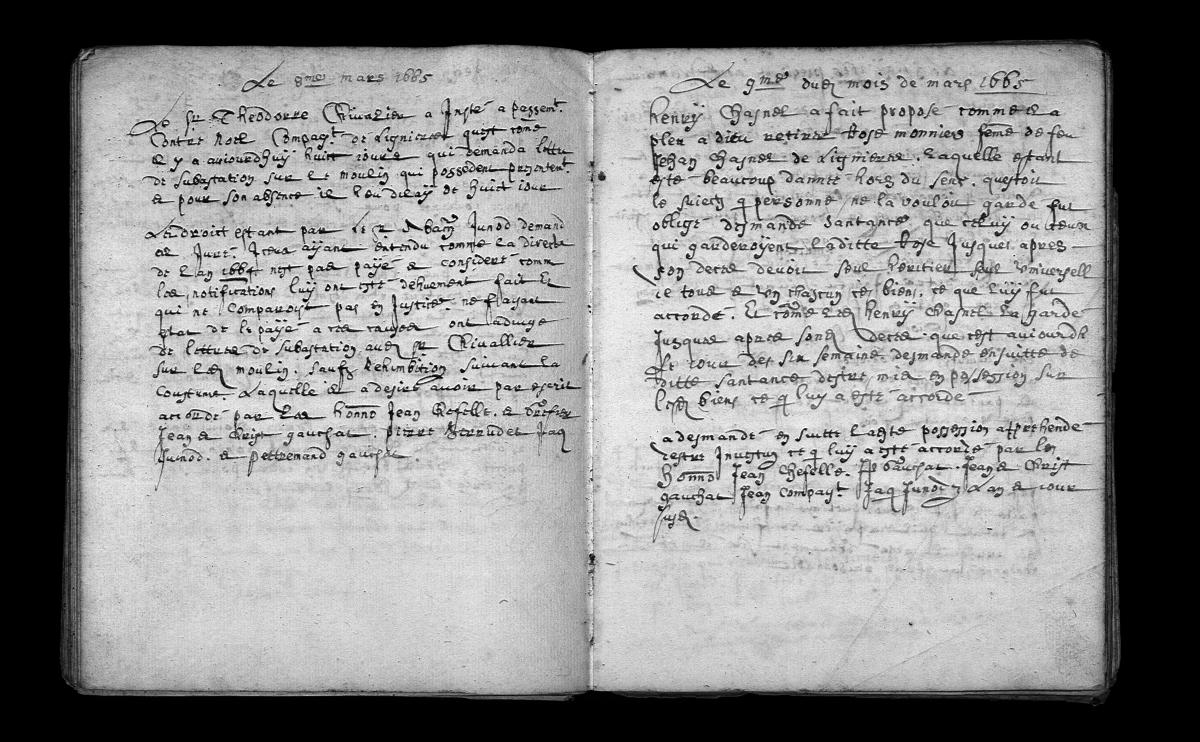 Le 8me mars 1665
Le Sr Theodorre Chivalier a Insté a passemt
Contre Noel Compagt de Lignieres quest come
il y a aujourdhuy huit jours qui demanda lettre
de subastation sur le moulin qui possedent presentemt
& pour son absence il heu delay de huict jour
Le droict estant par le Sr Junod demand
de Jure. Iceux aijant entendu comme la directe
de Lan 1664 nest pas payé & consideré comm
les notifications luy ont esté dehuement fait &
qui ne comparoist pas en Justice ne faisant
estat de le payé a ces causes ont adiugé
de lettre de subastation aud Sr Chivallier
sur led moulin. Sauf Rehimbition suivant la
Coustume. Laquelle il a desiré avoir par escrit
accordé par les honno Jean Chefelle. &
Jean & Crist gauchat. pierre Berrudet Jaq
Junod. & pettremand gauchat
Le 9me dud mois de mars 1665
henry Chasnel a fait proposé comme il a
pleu a dieu retirer Rose monnier feme de feu
Jehan Chasnel de Lignieres. Laquelle estant
esté beaucoup dannee hors du sens. questoit
le suiect q personne ne la voulou garde fut
obligé desmande santance que celuy ou ceux
qui garderoyent laditte Rose Jusques apres
son deces devoit seul heritier seul universell
de tous & un chascun ces biens. ce que luy fut
accordé. Et come led henry Chasnel la garde
Jusques apres sond deces que cest aujourdh
Le jour des six semaine desmande ensuitte de
ditte santance destre mis en possession sur
lesd biens ce q luy a esté accordé
a desmandé en suitte laditte possession apprehendé
destre Investu ce q luy a esté accordé par les
honno Jean Chefelle. gauchat. Jean & Crist
gauchat Jean compagt Jaq Junod Lan & jour
susd.